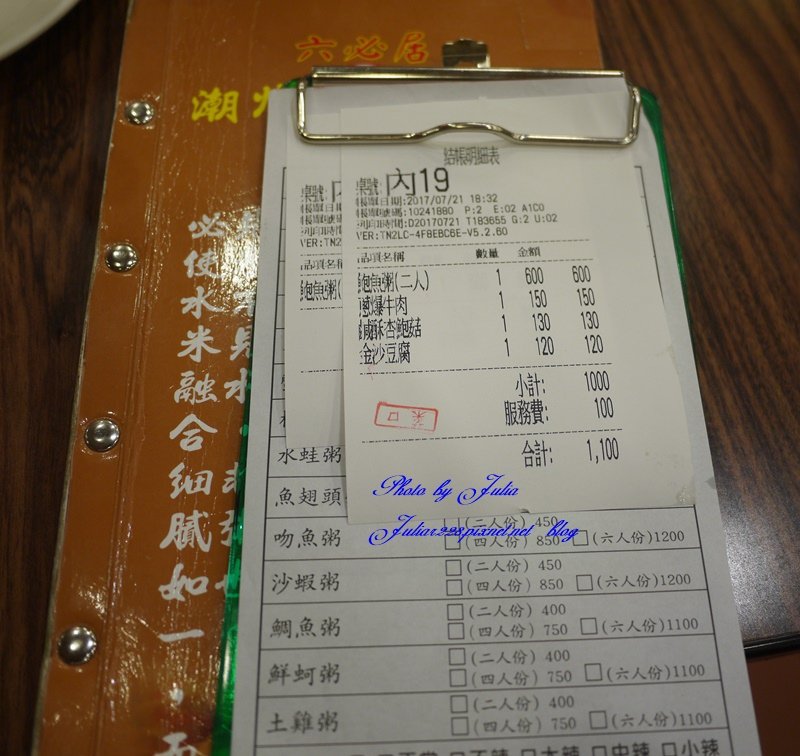 六必居
潮州
必使水米融合細膩如一，而
結帳明細表
桌號: 內19
帳單日期:2017/07/21 18:32
帳單號碼:10241880 P:2 E:02 A1C0
列印時間:D20170721 T183655 G:2 U:02
VER:TN2LC-4F8EBC6E-V5.2.60
品項名稱 數量 金額
鮑魚粥(二人) 1 600 600
蔥爆牛肉 1 150 150
鹹酥杏鮑菇 1 130 130
金沙豆腐 1 120 120
小計: 1000
服務費: 100
合計: 1,100
桌號:
VER:TN2
品項名稱
鮑魚粥(
Photo by Julia
Juliar228.pixnet.net blog
水蛙粥
魚翅頭
吻魚粥 □(二人份) 450
□(四人份) 850 □(六人份)1200
沙蝦粥 □(二人份) 450
□(四人份) 850 □(六人份)1200
鯛魚粥 □(二人份) 400
□(四人份) 750 □(六人份)1100
鮮蚵粥 □(二人份) 400
□(四人份) 750 □(六人份)1100
土雞粥 □(二人份) 400
□(四人份) 750 □(六人份)1100
□不辣 □大辣 □中辣 □小辣